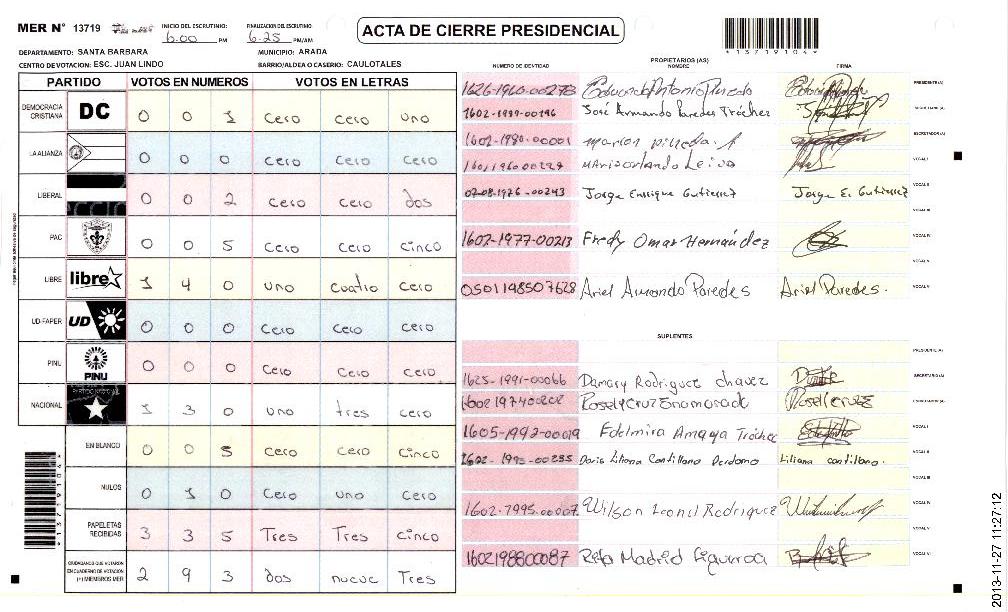 MER N° 13719
INICIO DEL ESCRUTINIO: 6:00 PM
FINALIZACION DEL ESCRUTINIO 6:25 PM/AM
ACTA DE CIERRE PRESIDENCIAL
*13719104*
DEPARTAMENTO: SANTA BARBARA
MUNICIPIO: ARADA
CENTRO DE VOTACION: ESC. JUAN LINDO
BARRIO/ALDEA O CASERIO: CAULOTALES
PARTIDO VOTOS EN NUMEROS VOTOS EN LETRAS
DEMOCRACIA CRISTIANA DC 0 0 1 cero cero uno
LA ALIANZA 0 0 0 cero cero cero
LIBERAL 0 0 2 cero cero dos
PAC 0 0 5 cero cero cinco
LIBRE libre 1 4 0 uno cuatro cero
UD-FAPER UD 0 0 0 cero cero cero
PINU PINU 0 0 0 cero cero cero
NACIONAL 1 3 0 uno tres cero
EN BLANCO 0 0 5 cero cero cinco
NULOS 0 1 0 cero uno cero
PAPELETAS RECIBIDAS 3 3 5 Tres Tres cinco
CIUDADANOS QUE VOTARON EN CUADERNO DE VOTACION (*) MIEMBROS MER 2 9 3 dos nueve Tres
*13719104*
PROPIETARIOS (AS)
NUMERO DE IDENTIDAD NOMBRE FIRMA
1626-1960-00278 Antonio PRESIDENTE (A)
1602-1999-00196 José Armando Paredes Tróchez
1602-1980-00001 Marlon Pineda A
1601196000229 Mario orlando Leiva VOCAL I
0208-1976-00243 Jorge Enrique Gutierrez Jorge E. Gutierrez VOCAL II
VOCAL III
1602-1977-00213 Fredy Omar Hernández VOCAL IV
VOCAL V
0501198507628 Ariel Armando Paredes Ariel Paredes. VOCAL V
SUPLENTES
PRESIDENTE (A)
1625-1991-00066 Damary Rodriguez chavez SECRETARIO (A)
1602197400202 Rosely Cruz Enamorado Rosely CRUZ
1605-1992-00019 Edelmira Amaya Tróchez VOCAL I
1602-1995-00235 Doris Liliana Castillano Perdomo Liliana castillano. VOCAL II
VOCAL III
1602-1995-00007 Wilson Leonel Rodriguez VOCAL IV
VOCAL V
1602198800087 Rita Madrid Figueroa VOCAL VI
2013-11-27 11:27:12